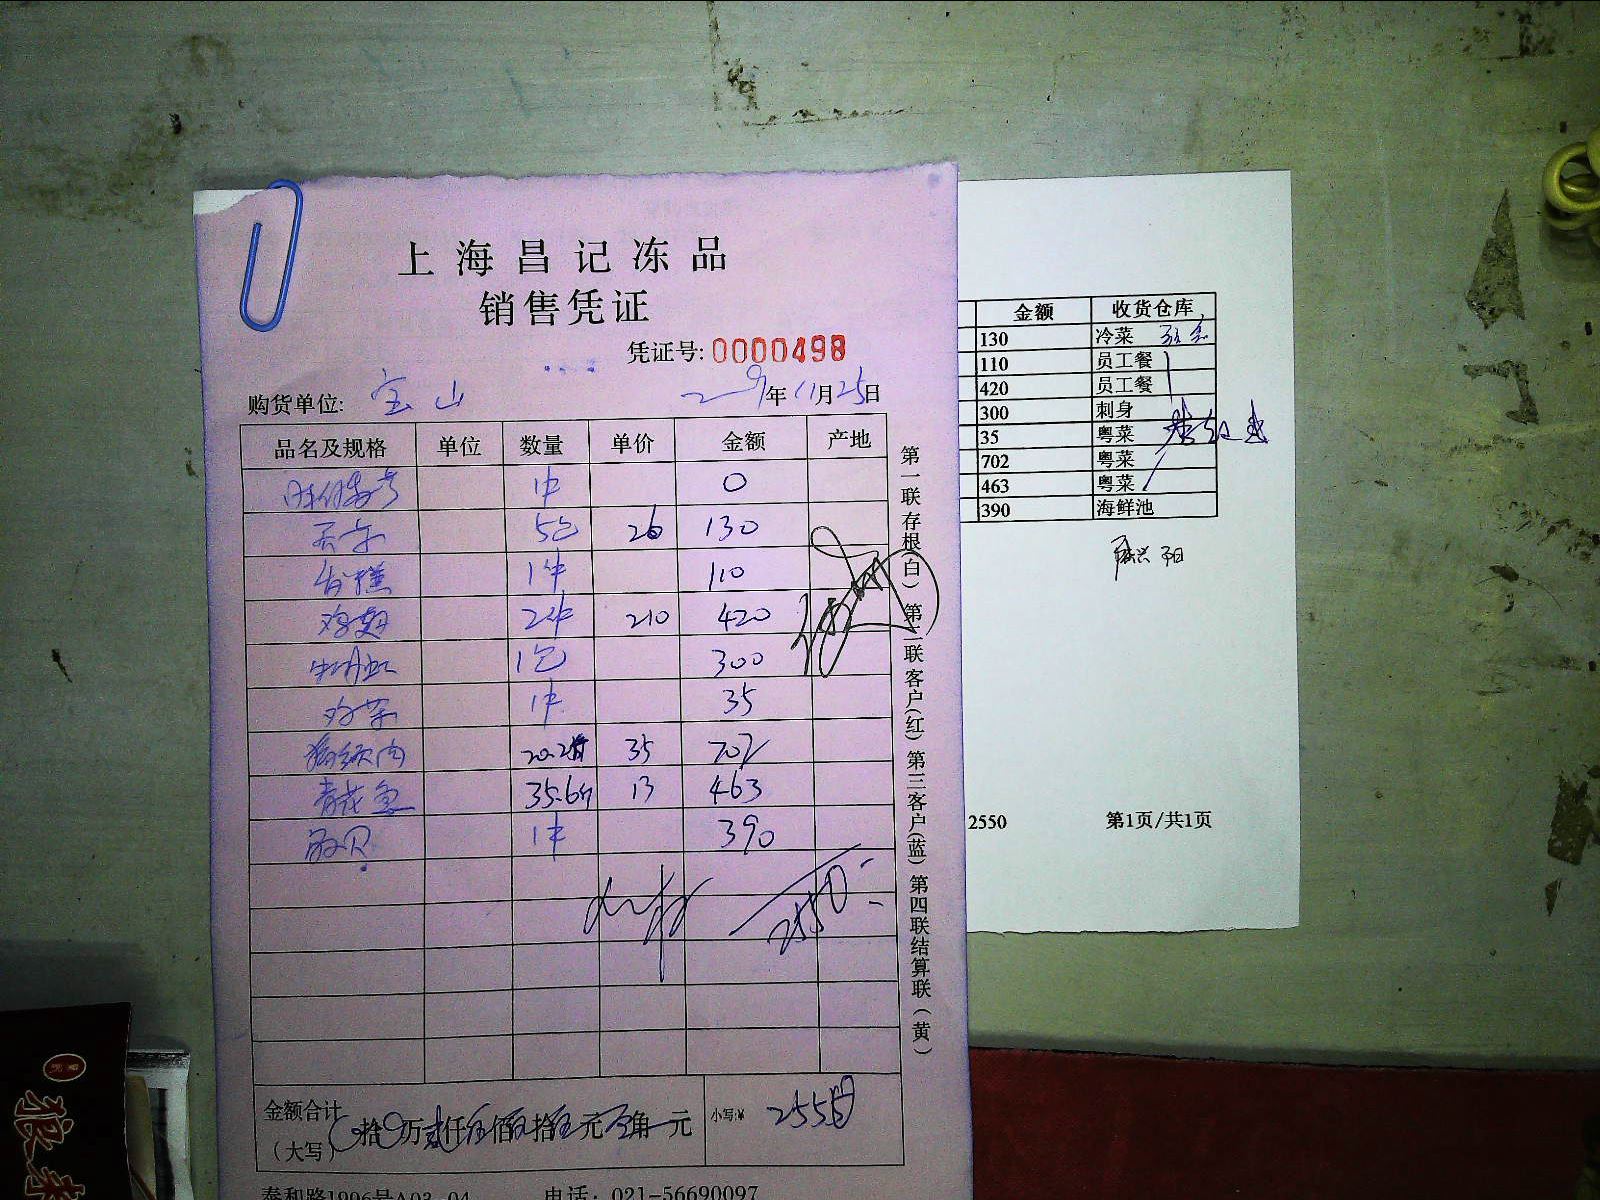 上海昌记冻品
销售凭证
凭证号: 0000498
购货单位: 宝山 年11月25日
品名及规格 单位 数量 单价 金额 产地
1件 0
5包 26 130
年糕 1件 110
鸡翅 2件 210 420
牡丹虾 1包 300
1件 35
猪颈肉 20.2斤 35 702
青花鱼 35.6斤 13 463
1件 390
2550
金额合计
(大写) 拾 万 仟 佰 拾 元 角 元 小写:¥ 2550
泰和路1996号A03-04 电话: 021-56690097
第一联存根(白) 第二联客户(红) 第三客户(蓝) 第四联结算联(黄)
金额 收货仓库
130 冷菜
110 员工餐
420 员工餐
300 刺身
35 粤菜
702 粤菜
463 粤菜
390 海鲜池
2550 第1页/共1页